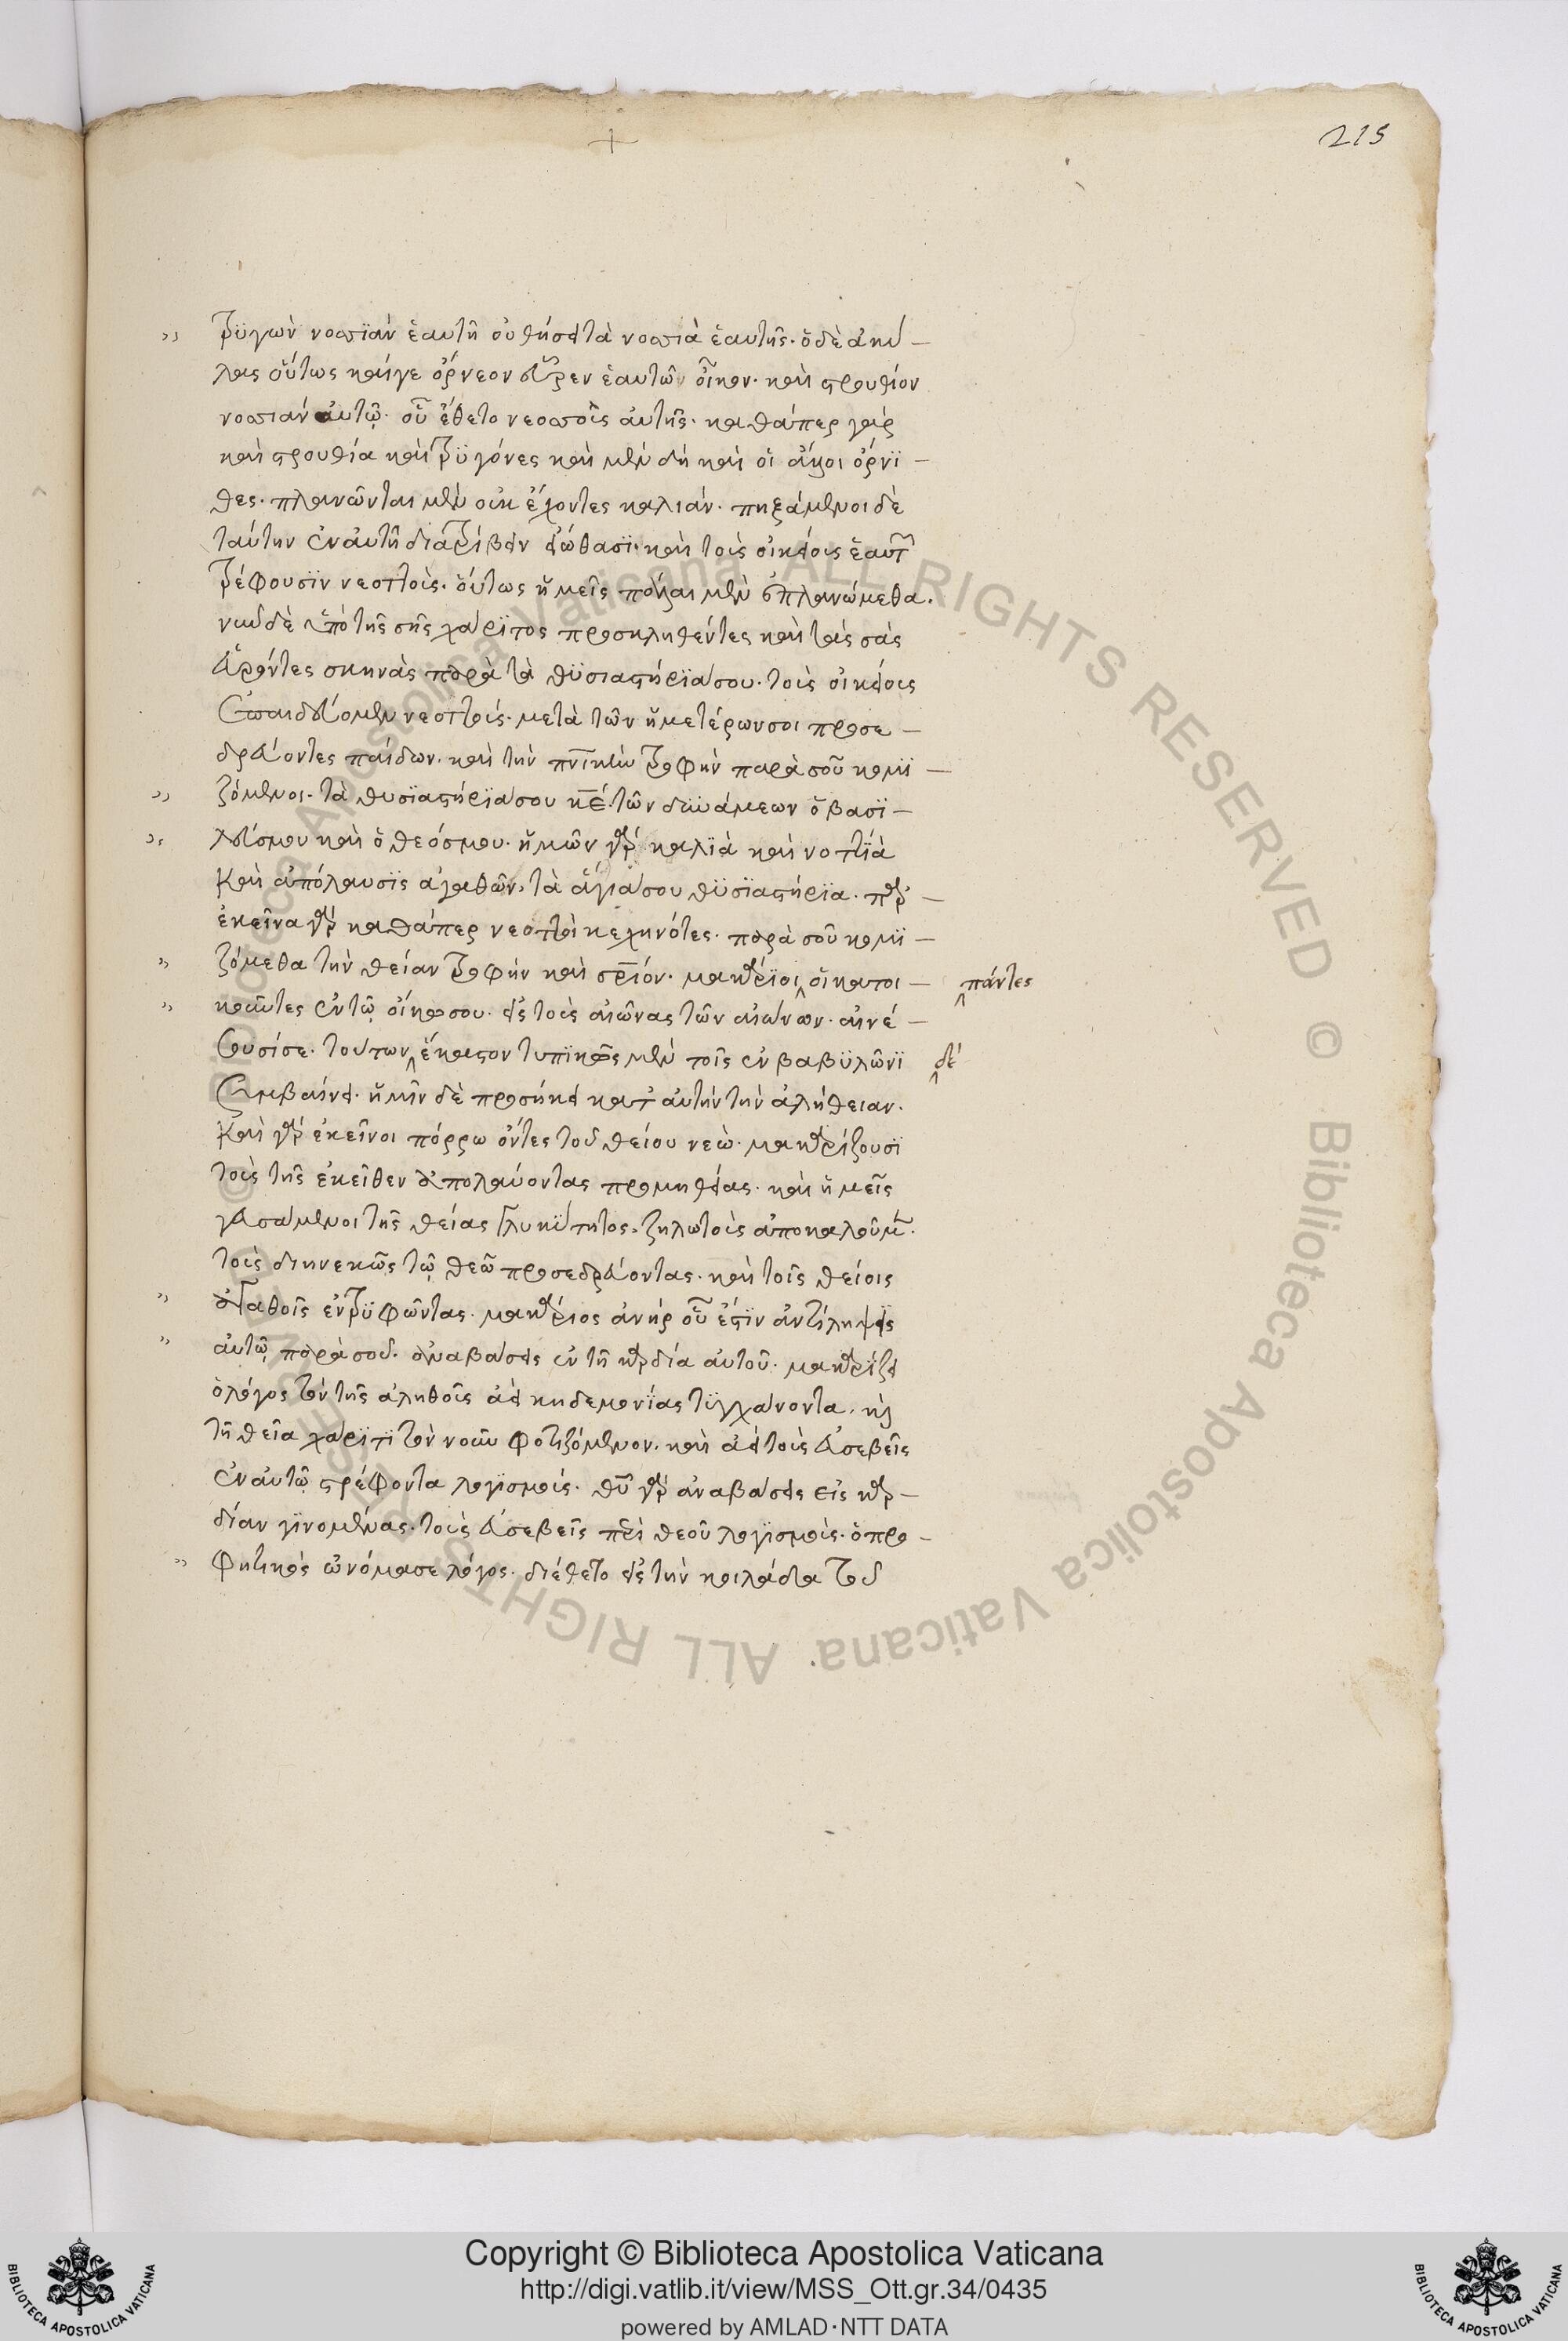 215
τρϋγὼν νοσσϊὰν ἑαυτῆ οὗ θήσει τὰ νοσσιὰ ἑαυτῆς. ὁ δὲ ἀκύ –
λας οὕτως καίγε ὄρνεον εὗρεν ἑαυτῶ οἶκον. καὶ στρουθίον
νοσσιὰν αὑτῷ. οὗ ἔθετο νεοσσοὺς αὑτῆς. καθάπερ γὰρ
καὶ στρουθία καὶ τρϋγόνες καὶ μὲν δὴ καὶ οἱ ἄλλοι ὄρνϊ –
θες. πλανῶνται μὲν οὐκ ἔχοντες καλιάν. πηξάμενοι δὲ
ταύτην ἐν αὐτῆ διατρίβειν εἰώθασϊ. καὶ τοὺς οἰκείους ἑαυτ
τρέφουσϊν νεοττοὺς. οὕτως ἡμεῖς πάλαι μὲν ἐπλανώμεθα.
νυνὶ δὲ ὑπὸ τῆς σῆς χάρϊτος προσκληθέντες καὶ τὰς σὰς
εὑρόντες σκηνὰς παρὰ τὰ θϋσιαστήρϊά σου. τοὺς οἰκείους
ἐπαιδεύομεν νεοττούς. μετὰ τῶν ἡμετέρων σοι προσε –
δρεύοντες παίδων. καὶ τὴν πνικὴν τροφὴν παρὰ σοῦ κομϊ –
ζόμενοι. τὰ θυσϊαστήρϊά σου κε. τῶν δϋνάμεων ὁ βασϊ –
λεύς μου καὶ ὁ θεός μου. ἡμῶν γὰρ καλϊὰ καὶ νοττϊὰ
καὶ ἀπόλαυσϊς ἀγαθῶν. τὰ ἅγιά σου θϋσϊαστήρϊα. παρ –
ἐκεῖνα γὰρ καθάπερ νεοττοὶ κεχηνότες. παρὰ σοῦ κομϊ –
ζόμεθα τὴν θείαν τροφὴν καὶ σριόν. μακάρϊοι οἱ κατοι – πάντες
κοῦντες ἐν τῷ οἴκῳ σου. εἰς τοὺς αἰῶνας τῶν αἰώνων. αἰνέ –
σουσί σε. τούτων ἕκαστον τυπϊκῶς μὲν τοῖς ἐν βαβϋλῶνϊ δὲ
συμβαίνει. ἡμῖν δὲ προσήκει κατ' αὐτὴν τὴν ἀλήθειαν.
καὶ γὰρ ἐκεῖνοι πόρρω ὄντες τοῦ θείου νεὼ. μακαρίζουσϊ
τοὺς τῆς ἐκεῖθεν ἀπολαύοντας προμηθείας. καὶ ἡμεῖς
γευσάμενοι τῆς θείας γλυκϋτητος. ζηλωτοὺς ἀποκαλοῦμ.
τοὺς διηνεκῶς τῷ θεῶ προσεδρεύοντας. καὶ τοῖς θείοις
ἀγαθοῖς ἐντρϋφῶντας. μακάριος ἀνὴρ οὗ ἐστϊν ἀντίληψϊς
αὐτῷ παρὰ σοῦ. ἀναβάσεις ἐν τῆ καρδία αὐτοῦ. μακαρίζει
ὁ λόγος τὸν τῆς ἀληθοῦς ἀεὶ κηδεμονίας τϋγχάνοντα. καὶ
τῆ θεῖα χάρϊτϊ τὸν νοῦν φοτιζόμενον. καὶ ἀεὶ τοὺς εὐσεβεῖς
ἐν αὑτῷ στρέφοντα λογϊσμοὺς. θῦ γὰρ ἀναβάσεις εἰς καρ –
δίαν γϊνομένας. τοὺς εὐσεβεῖς περὶ θεοῦ λογϊσμοὺς. ὁ προ –
φητικὸς ὠνόμασε λόγος. διέθετο εἰς τὴν κοιλάδα τοῦ
Copyright © Biblioteca Apostolica Vaticana
http://digi.vatlib.it/view/MSS_Ott.gr.34/0435
powered by AMLAD·NTT DATA